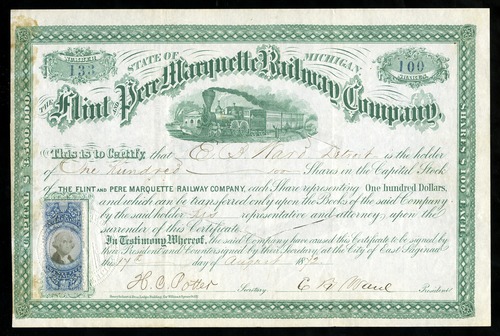 NUMBER
133
STATE OF MICHIGAN
100
SHARES
THE Flint AND Pere Marquette Railway Company,
CAPITAL $
SHARES $100 EACH
This is to Certify, that E. B. Ward Detroit is the holder
of One hundred 100 Shares in the Capital Stock
OF THE FLINT AND PERE MARQUETTE RAILWAY COMPANY, each Share representing One Hundred Dollars,
and which can be transferred only upon the Books of the said Company
by the said holder his representative and attorney upon the
surrender of this Certificate.
In Testimony Whereof, the said Company have caused this Certificate to be signed by
their President and Countersigned by their Secretary, at the City of East Saginaw
this 17th day of August 1872
H. C. Potter Secretary
President